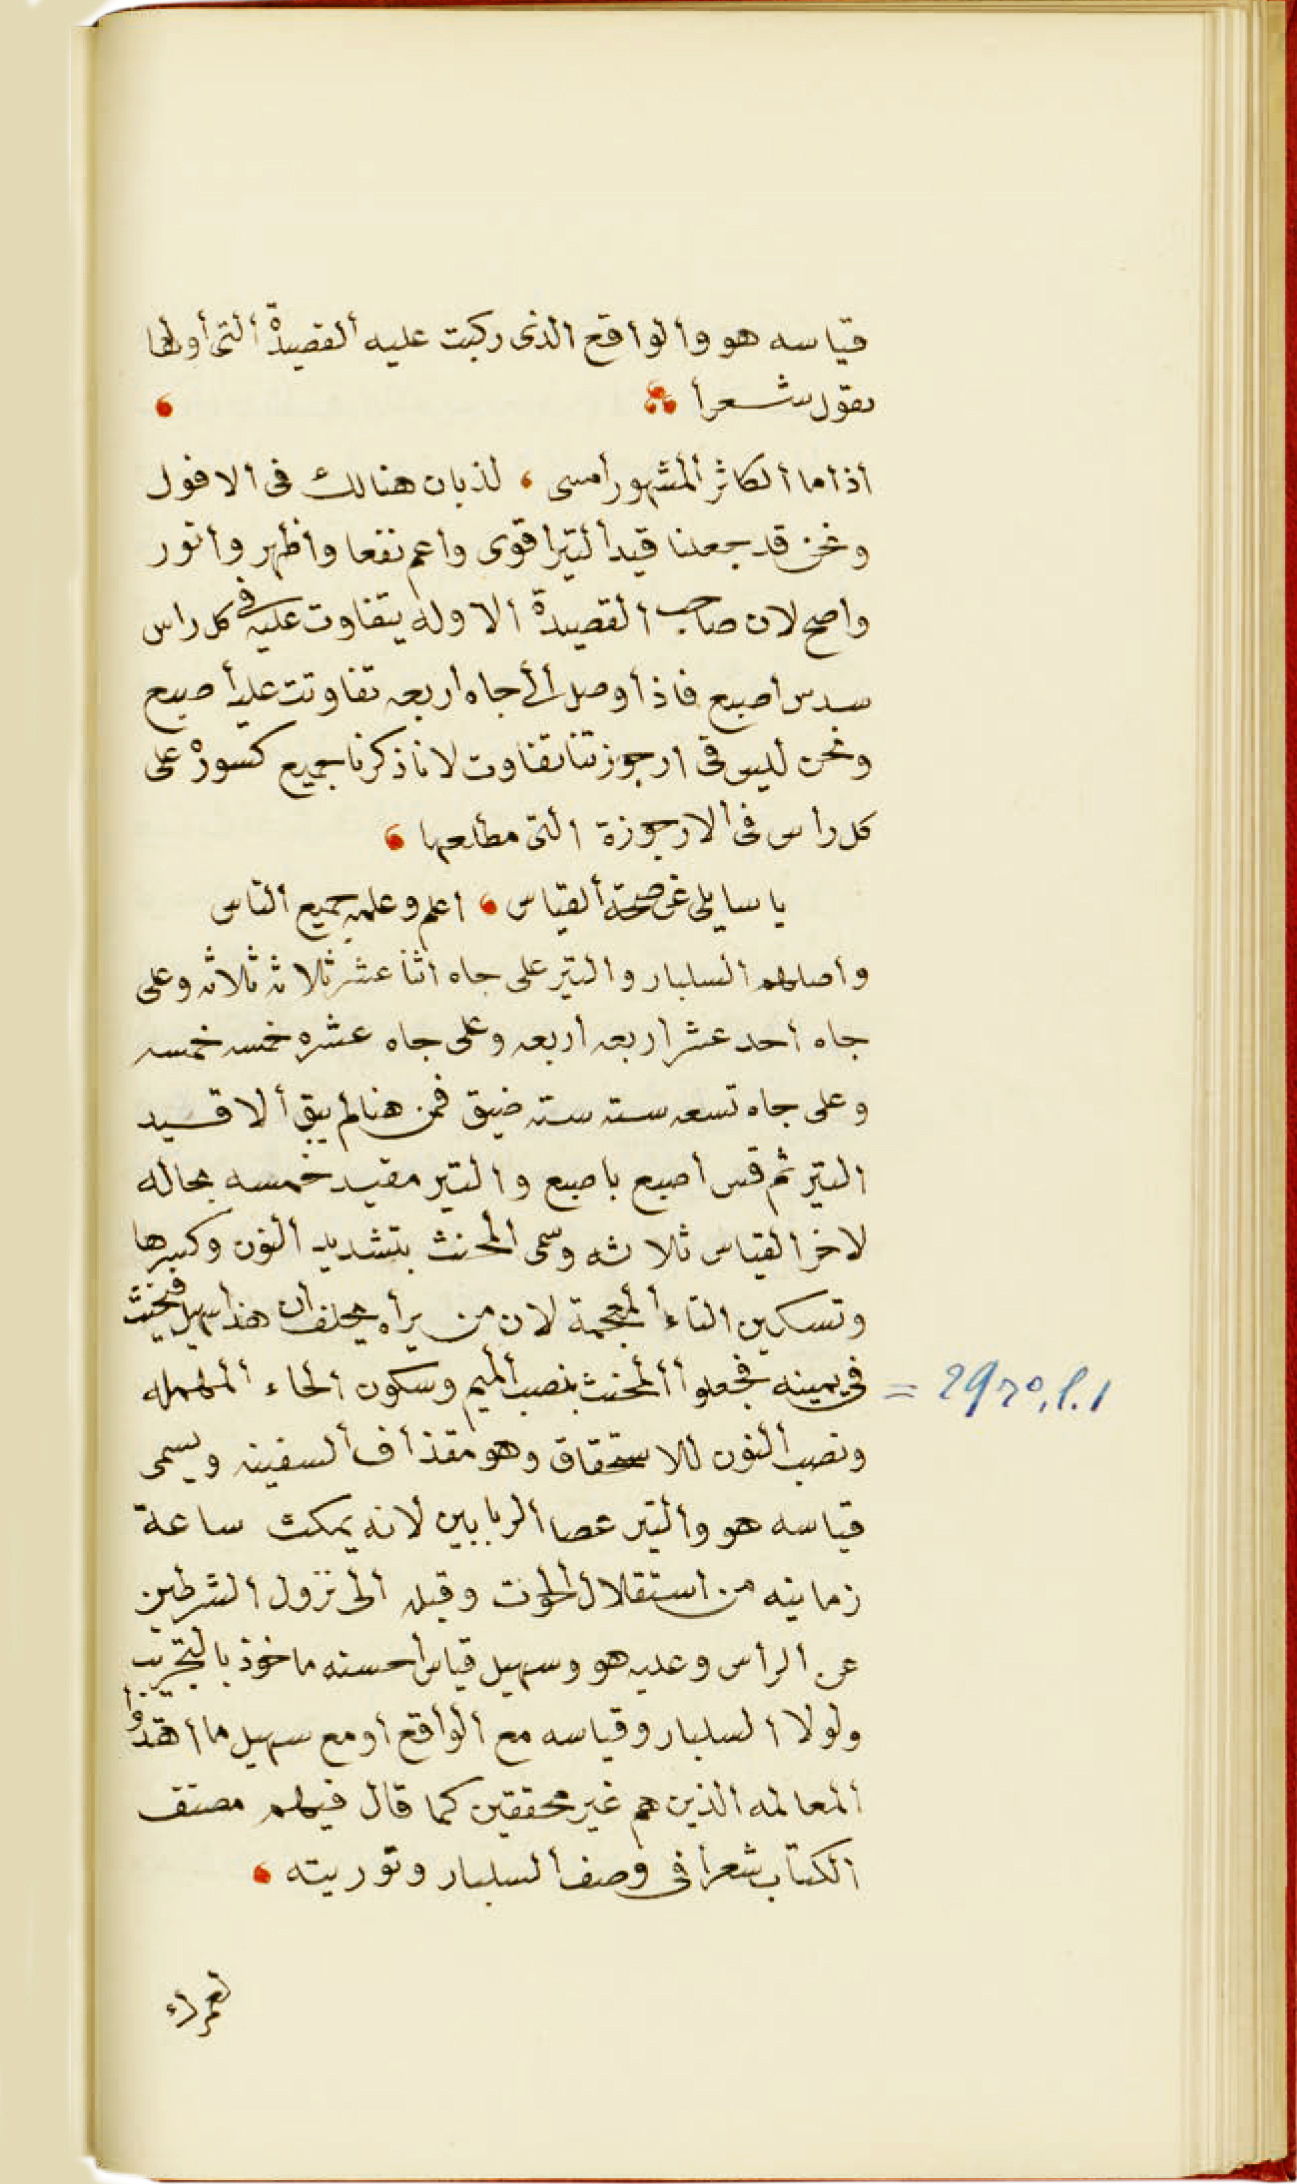 قياسه هو والواقع الذى ركبت عليه القصيدة التى أولها
نقول شعرا
اذا ما الكاثر المشهور امسى ، لذبان هنالك فى الافول
ونحن قد جعلنا قيد التير اقوى واعم نفعا واظهر وانور
واصح لان صاحب القصيدة الاوله يتفاوت عليه فى كل راس
سدس اصبع فاذا وصل الى جاه اربعه تفاوتت عليه أصبع
ونحن ليس فى ارجوزتنا تفاوت لانا ذكرنا جميع كسوره على
كل راس فى الارجوزة التى مطلعها
يا سايلى عن صحة القياس ، اعلم وعلمه جميع الناس
واصلهم السلبار والتير على جاه اثنا عشر ثلاثه ثلاثه وعلى
جاه احد عشر اربعه اربعه وعلى جاه عشره خمسه خمسه
وعلى جاه تسعه سته سته ضيق فمن هنا لم يبق ألا قيد
التير ثم قس اصبع باصبع والتير مقيد خمسه بحاله
لاخر القياس ثلاثه وسمى المحنث بتشديد النون وكسرها
وتسكين الثاء المعجمة لان من يرأه يحلف ان هذا سهيل فيحنث
فى يمينه فجعلوا ألمحنث بنصب الميم وسكون الحاء المهمله
ونصب النون للاستحقاق وهو مقذاف السفينه ويسمى
قياسه هو والتير عصا الربابين لانه يمكث ساعة
زمانيه من استقلال الحوت وقبله الى نزول الشرطين
عن الراس وعليه هو وسهيل قياس احسنه ماخوذ بالتجريب
ولولا السلبار وقياسه مع الواقع اومع سهيل ما اهتدوا
المعالمه الذين هم غير محققين كما قال فيهم مصنف
الكتاب شعرا فى وصف السلبار وتوريته
= 2920, l. 1